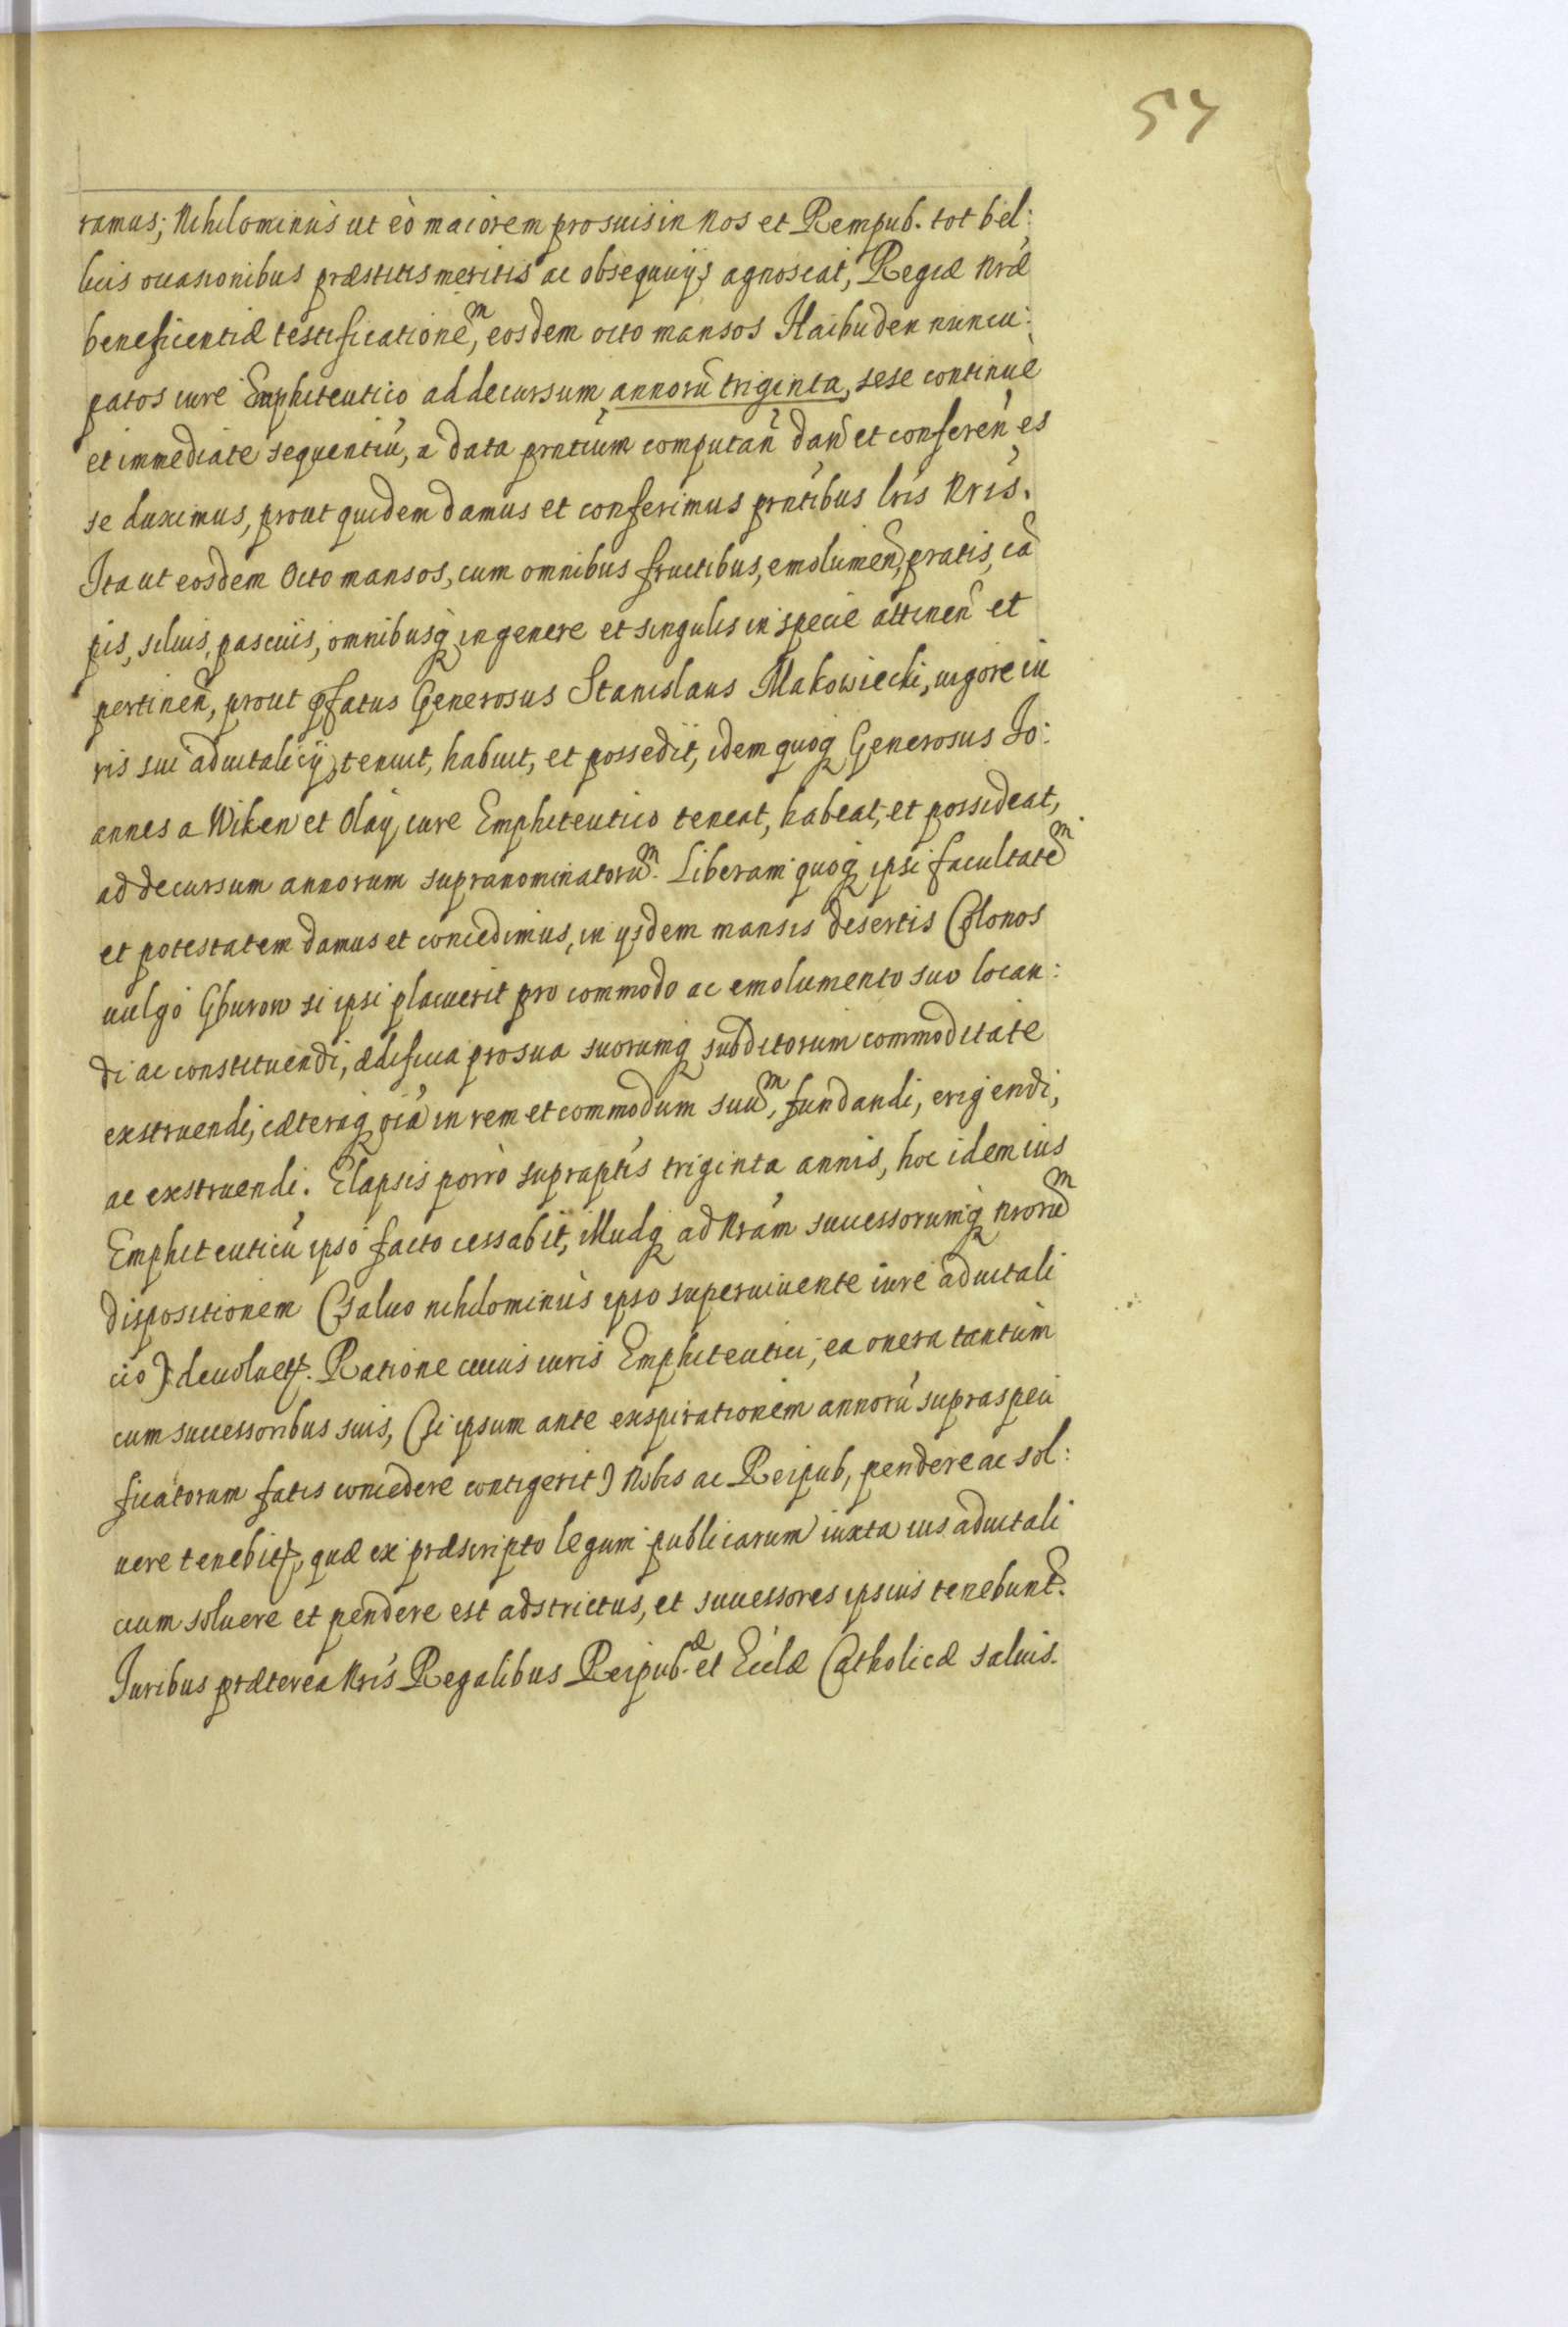 57
ramus; Nihilominùs ut eò maiorem pro suis in Nos et Rempub. tot bel:
licis occasionibus præstitis meritis ac obsequijs agnoscat, Regiæ Nræ
beneficentiæ testificationẽm, eosdem octo mansos Haibuden nuncu:
patos iure Emphiteutico ad decursum annorũ triginta, sese continuè
et immediatè sequentiũ, a data prntium computan̄ dan̄ et conferen̄ es
se duximus, prout quidem damus et conferimus prntibus lris Nris.
Ita ut eosdem Octo mansos, cum omnibus fructibus, emolumen̄, pratis, cã
pis, siluis, pascuis, omnibusq̨ in genere et singulis in specie attinen̄ et
pertinen̄, prout p̱fatus Generosus Stanislaus Makowiecki, uigore iu
ris sui aduitalicij, tenuit, habuit, et possedit, idem quoq̨ Generosus Jo:
annes a Wiken et Olaÿ, iure Emphiteutico teneat, habeat, et possideat,
ad decursum annorum supranominatorũm. Liberam quoq̨ ipsi facultatẽm
et potestatem damus et concedimus, in ijsdem mansis desertis Colonos
uulgò Gburow si ipsi placuerit pro commodo ac emolumento suo locan:
di ac constituendi, ædificia pro sua suorumq̨ subditorum commoditate
exstruendi, cæteraq̨ oĩa in rem et commodum suũm, fundandi, erigendi,
ac exstruendi. Elapsis porrò supraptis triginta annis, hoc idem ius
Emphiteuticũ ipso facto cessabit, illudq̨ ad Nram successorumq̨ Nrorũm
dispositionem (saluo nihilominùs ipso superuiuente iure aduitali
cio) deuoluetr. Ratione cuius iuris Emphiteutici, ea onera tantùm
cum successoribus suis, (si ipsum ante exspirationem annorũ supraspeci
ficatorum fatis concedere contigerit) Nobis ac Reipub, pendere ac sol:
uere tenebitr, quæ ex præscripto legum publicarum iuxta ius aduitali
cium soluere et pendere est adstrictus, et successores ipsius tenebunt̄.
Juribus præterea Nris Regalibus Reipub.æ et Ecclæ Catholicæ saluis.